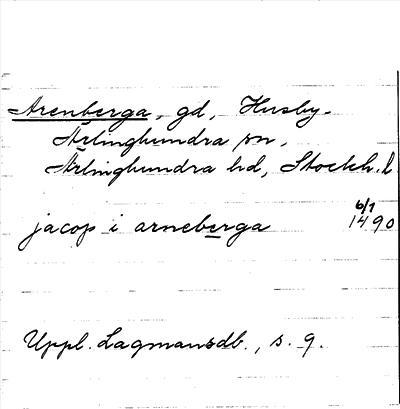 Arenberga, gd, Husby-
Ärlinghundra sn,
Ärlinghundra hd, Stockh. l
jacop i arneberga 6/7 1490
Uppl. Lagmansdb., s. 9.